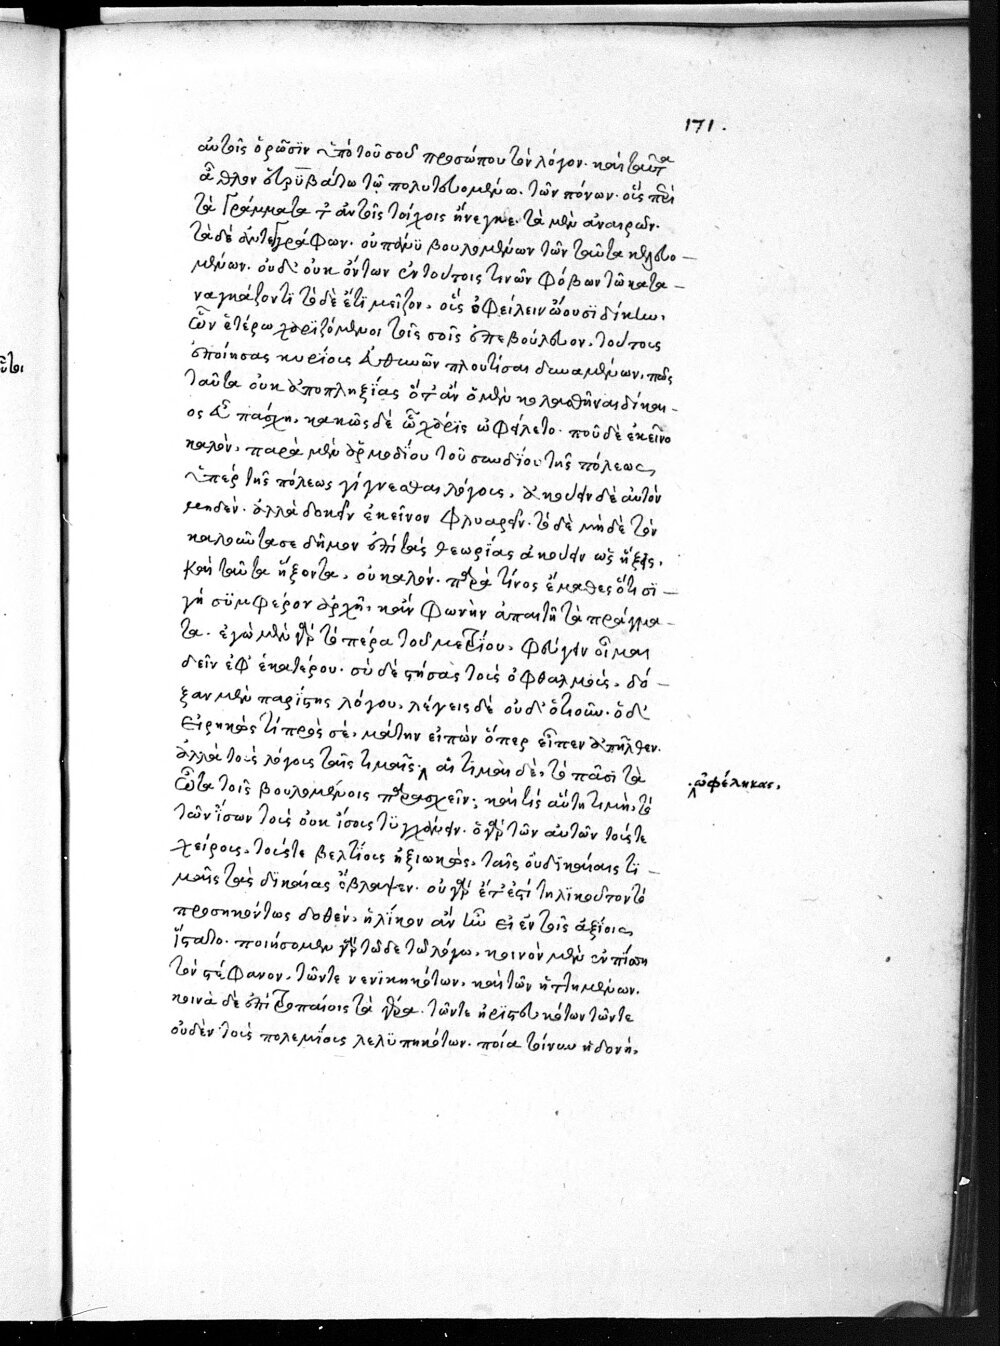 171.
αὐτοῖς ὁρῶσϊν ὑπὸ τοῦ σοῦ προσώπου τὸν λόγον. καὶ ταῦτα
ἆθλον τῶ πολιτευομένω. τῶν πόνων. οἷς περὶ
τὰ γράμματα τ ἀν τοῖς τοίχοις ἤνεγκε. τὰ μὲν ἀναιρῶν.
τὰ δὲ ἀντεγγράφων. οὐ πάνϋ βουλομένων τῶν ταῦτα κτησο—
μένων. οὐδ' οὐκ ὄντων ἐν τούτοις τινῶν φόβων τῶ κατα—
ναγκάζοντϊ τὸ δὲ ἔτϊ μεῖζον. οἷς ὀφείλειν ὤουσϊ δίκην.
ὧν ἑτέρω χαρϊζόμενοι τοῖς σοῖς ἐπεβούλευον. τούτοις
ἐποίησας κυρίοις Ἀθηνῶν πλουτίσαι δυναμένων. πῶς
ταῦτα οὐκ ἀποπληξΐας ὅτ' ἂν ὃ μὲν κολασθῆναι δίκαι—
ος εὖ πάσχη. κακῶς δὲ ὧ χάρϊς ὠφείλετο. ποῦ δὲ ἐκεῖνο
καλὸν. παρὰ μὲν ἁρμοδίου τοῦ σπυδίου τῆς πόλεως
ὑπὲρ τῆς πόλεως γίγνεσθαι λόγοις. ἀκούειν δὲ αὐτὸν
μηδὲν. ἀλλὰ δοκεῖν ἐκεῖνον φλυαρεῖν. τὸ δὲ μὴ δὲ τὸν
καλοῦντα σε δῆμον ἐπὶ τὰς θεωρΐας ἀκούειν ὡς ἥξεις.
καὶ ταῦτα ἥξοντα. οὐ καλόν. παρὰ τίνος ἔμαθες ὅτι σϊ—
γὴ σϋμφέρον ἀρχῆ. κἂν φωνὴν ἀπαιτῆ τὰ πράγμα—
τα. ἐγὼ μὲν γὰρ τὸ πέρα τοῦ μετρίου. φεύγειν οἶμαι
δεῖν ἐφ' ἑκατέρου. σὺ δὲ στήσας τοὺς ὀφθαλμοὺς. δό—
ξαν μὲν παρΐστης λόγου. λέγεις δὲ οὐδ' ὁτιοῦν. ὁ δ'
εἰρηκὼς τΐ πρὸς σέ. μάτην εἰπὼν ὅπερ εἶπεν ἀπῆλθεν.
ἀλλὰ τοὺς λόγοις ταῖς τιμαῖς. αἱ τιμαὶ δὲ. τὸ πᾶσϊ τὰ
.ὠφέληκας.
ὦτα τοῖς βουλομένοις παρασχεῖν; καὶ τίς αὕτη τιμὴ. τὸ
τῶν ἴσων τοὺς οὐκ ἴσοις τϋγχάνειν. ὁ γὰρ τῶν αὐτῶν τούς τε
χείροις. τούς τε βελτΐοις ἠξιωκὼς. ταῖς οὐ δϊκαίαις τϊ—
μαῖς τὰς δϊκαίας ἔβλαψεν. οὐ γὰρ ἔτ' ἐστί τηλϊκοῦτον τὸ
προσηκόντως δοθὲν. ἡλίκον ἂν ἦν εἰ ἐν τοῖς ἀξίοις
ἵστατο. ποιήσομεν γὰρ τῶδε τῶ λόγω. κοινὸν μὲν ἐν πίση
τὸν στέφανον. τῶν τε νενϊκηκότων. καὶ τῶν ἡττημένων.
κοινὰ δὲ ἐπὶ τροπαίοις τὰ γέρα. τῶν τε ἠρϊστευκότων τῶν τε
οὐδὲν τοὺς πολεμΐοις λελϋπηκότων. ποία τοίνυν ἡδονὴ.